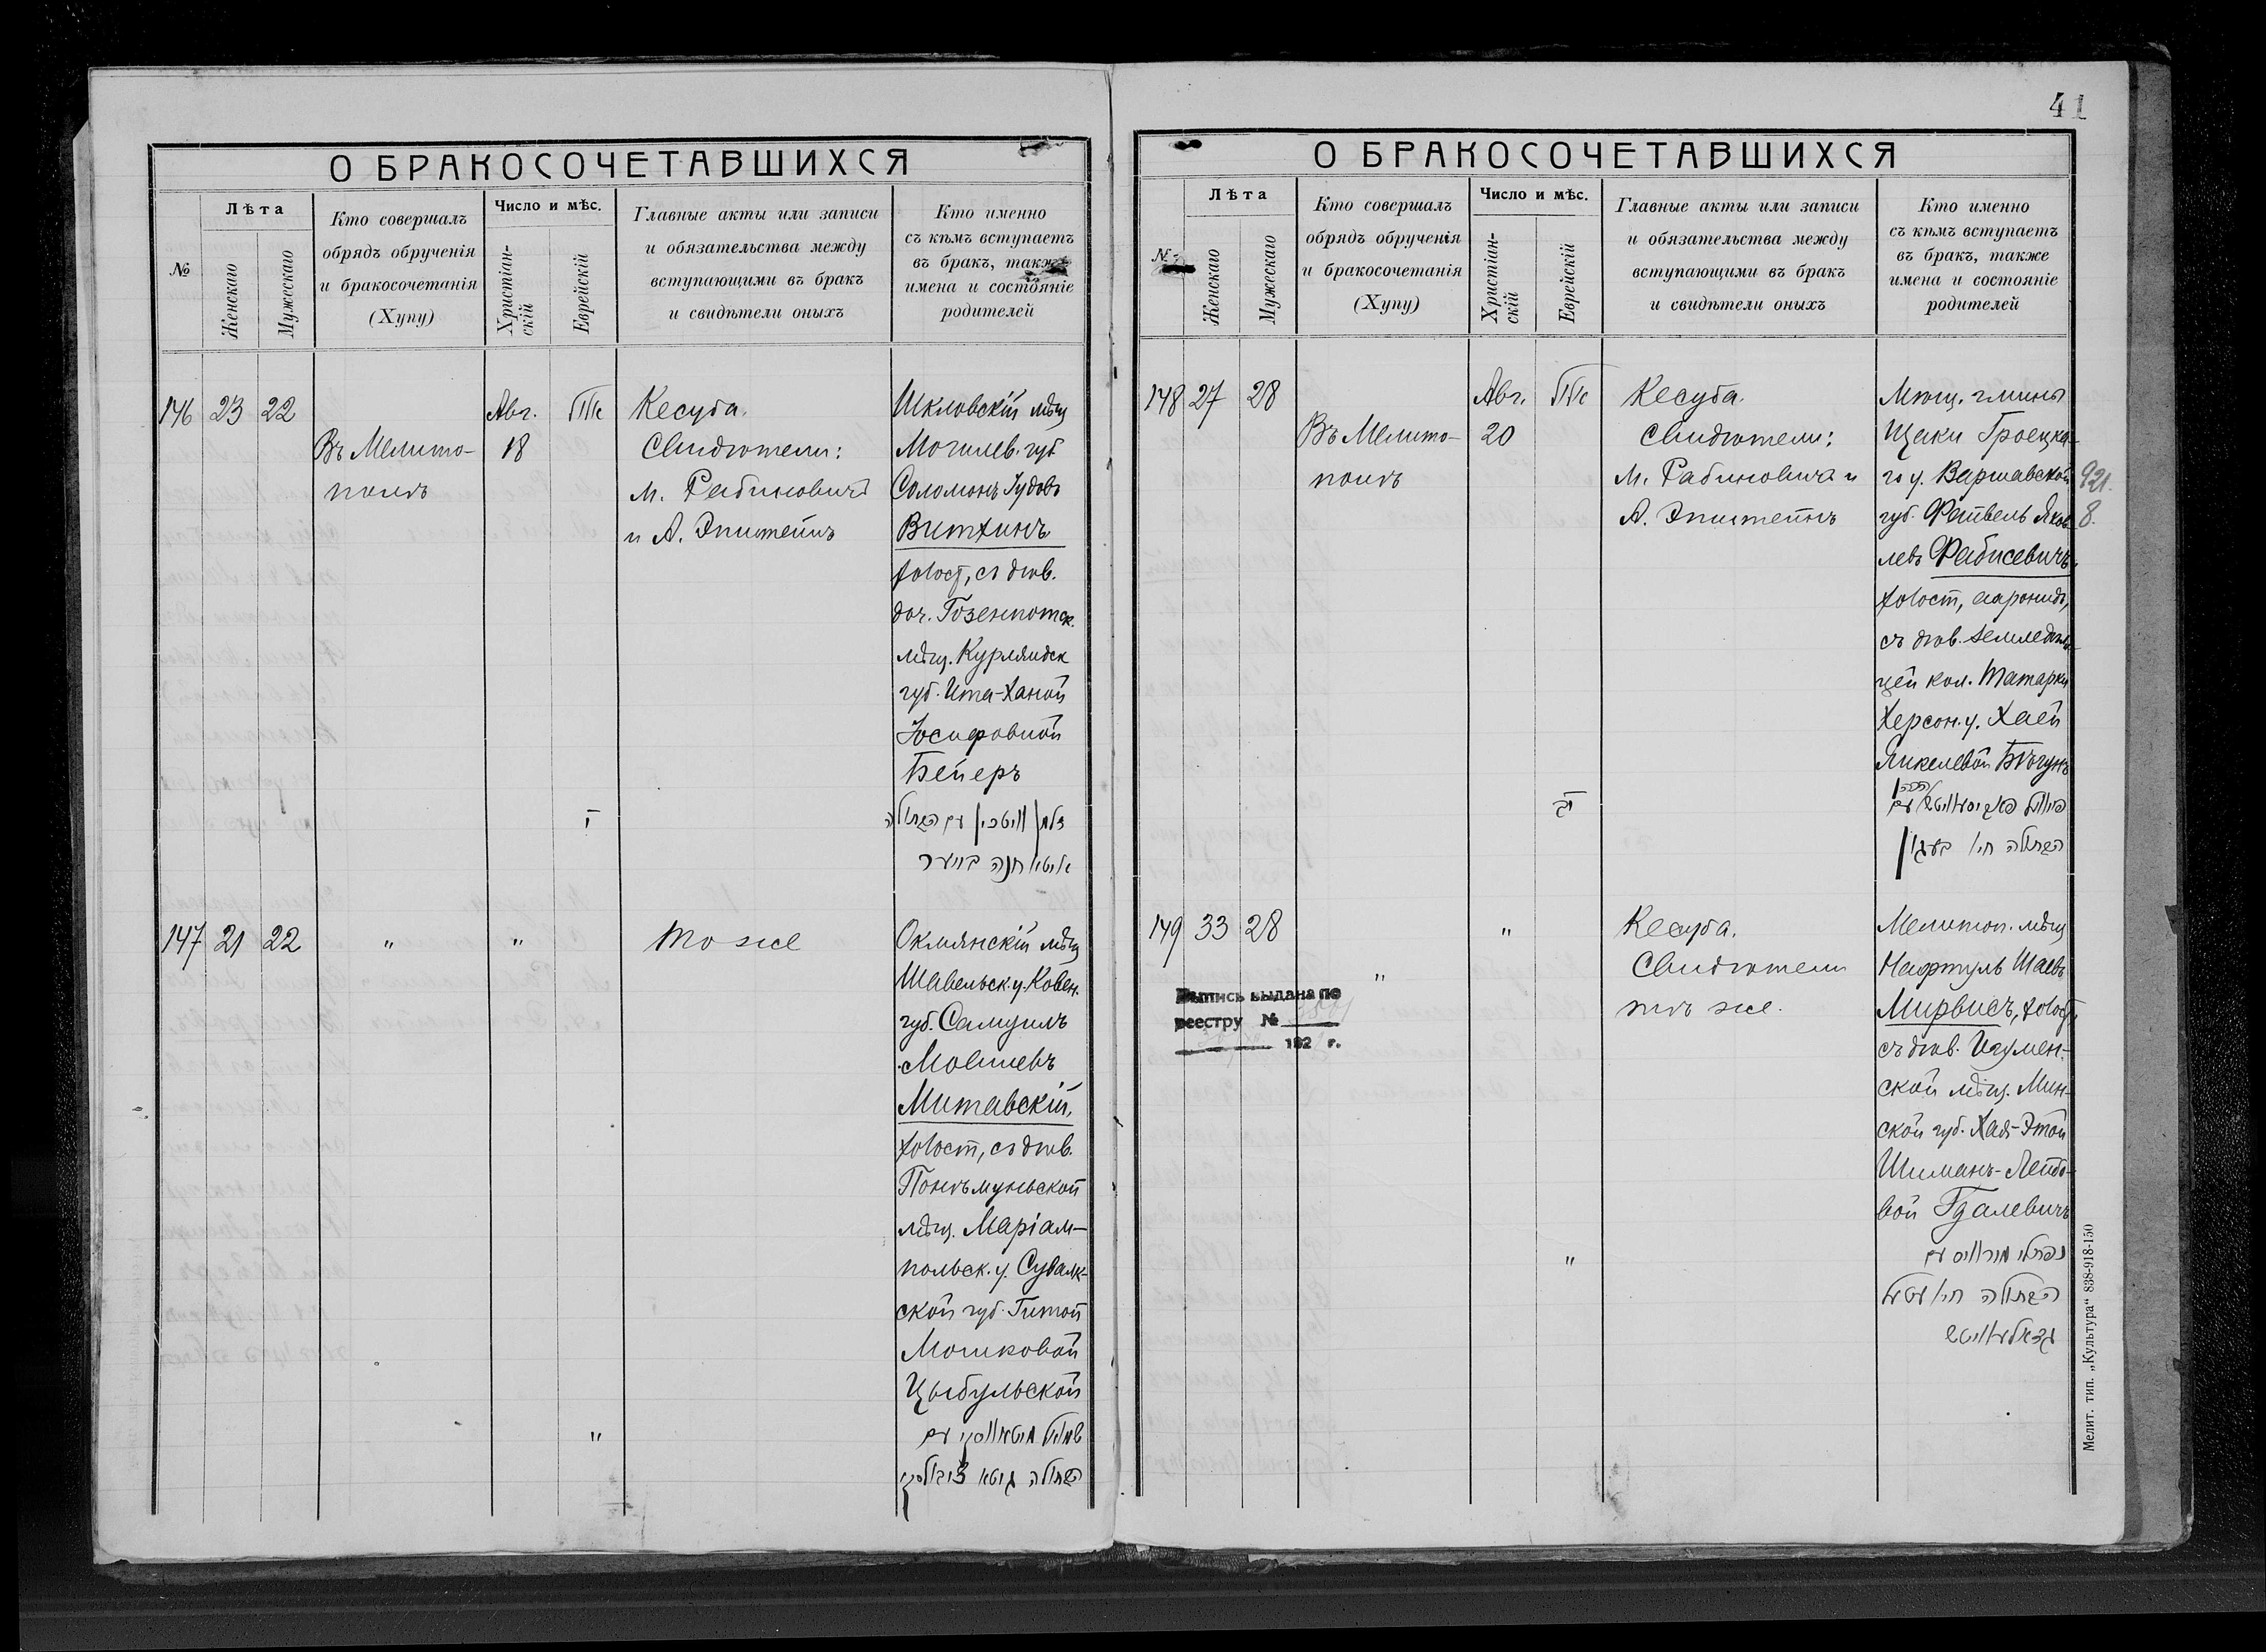 41
О БРАКОСОЧЕТАВШИХСЯ
№
Лѣта
Женскаго
Мужескаго
Кто совершалъ
обрядъ обрученія
и бракосочетанія
(Хупу)
Число и мѣс.
Христіан-
скій
Еврейскій
Главные акты или записи
и обязательства между
вступающими въ бракъ
и свидѣтели оныхъ
Кто именно
съ кѣмъ вступаетъ
въ бракъ, также
имена и состояніе
родителей
146 23 22
Въ Мелито-
полѣ
Авг.
18
Кесуба.
Свидѣтели:
М. Рабиновичъ
и А. Эпштейнъ
Шкловскій мѣщ
Могилев. губ
Соломонъ Іудовъ
Виткинъ
холост, съ дѣв.
доч. Газенпотск.
мѣщ. Курляндск
губ. Ита-Ханой
Іосифовной
Бейеръ
זלמן וויטקין עם הבתולה
איטא חנה בייער
147 21 22
"
"
То же
Окмянскій мѣщ
Шавельск. у. Ковен.
губ. Самуилъ
Мовшевъ
Митавскій,
холост, съ дѣв.
Понѣмуньской
мѣщ. Маріам-
польск. у. Сувалк-
ской губ. Гитой
Мошковой
Цыбульской
"
שמואל מיטאווסקי עם
הבתולה גיטא ציבולסקי
О БРАКОСОЧЕТАВШИХСЯ
№
Лѣта
Женскаго
Мужескаго
Кто совершалъ
обрядъ обрученія
и бракосочетанія
(Хупу)
Число и мѣс.
Христіан-
скій
Еврейскій
Главные акты или записи
и обязательства между
вступающими въ бракъ
и свидѣтели оныхъ
Кто именно
съ кѣмъ вступаетъ
въ бракъ, также
имена и состояніе
родителей
148 27 28
Въ Мелито-
полѣ
Авг.
20
Кесуба.
Свидѣтели:
М. Рабиновичъ и
А. Эпштейнъ
гмины
Гроецка-
го у. Варшавской
губ. Файвель Яков-
левъ Фабисевичъ,
холост, ааронидъ,
съ дѣв. земледѣль-
цей кол. Татарки
Херсон. у. Хаей
Янкелевой Бѣгунъ
921.
8.
הכהן
עם
הבתולה חיי' בעגון
149 33 28
"
"
Кесуба.
Свидѣтели
тѣ же.
Мелитоп. мѣщ
Нафтуль Шаевъ
Мирвисъ, холост,
съ дѣв. Игумен-
ской мѣщ. Мин-
ской губ. Хая-Этой
Шиманъ-Лейбо-
вой Гдалевичъ
"
נפתלי מירוויס עם
הבתולה חי' עטל
גדאלעוויטש
Выпись выдана по
реестру №
192 г.
Мелит. тип. „Культура“ 838-918-150